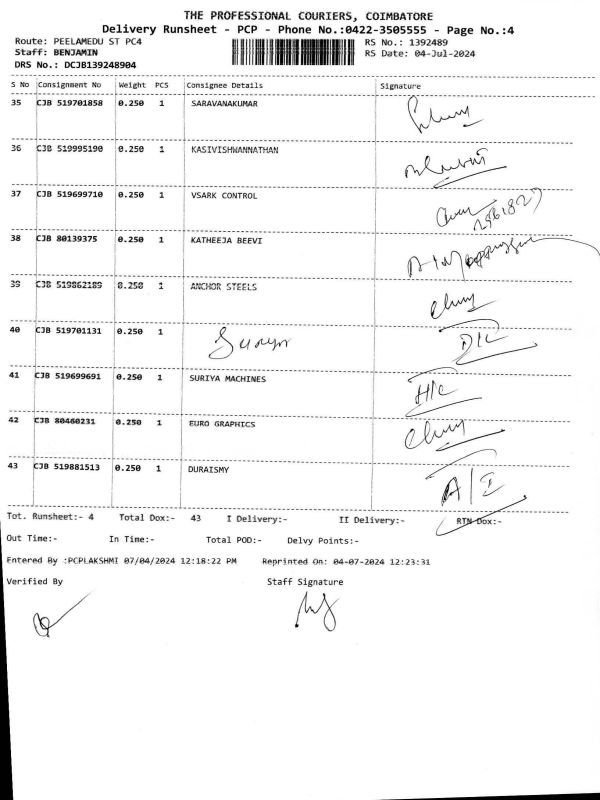 THE PROFESSIONAL COURIERS, COIMBATORE
Delivery Runsheet - PCP - Phone No.:0422-3505555 - Page No.:4
Route: PEELAMEDU ST PC4 RS No.: 1392489
Staff: BENJAMIN RS Date: 04-Jul-2024
DRS No.: DCJB139248904
S No Consignment No Weight PCS Consignee Details Signature
35 CJB 519701858 0.250 1 SARAVANAKUMAR
36 CJB 519995190 0.250 1 KASIVISHWANNATHAN
37 CJB 519699710 0.250 1 VSARK CONTROL
38 CJB 80139375 0.250 1 KATHEEJA BEEVI
39 CJB 519862189 0.250 1 ANCHOR STEELS
40 CJB 519701131 0.250 1
41 CJB 519699691 0.250 1 SURIYA MACHINES
42 CJB 80460231 0.250 1 EURO GRAPHICS
43 CJB 519881513 0.250 1 DURAISMY
Tot. Runsheet:- 4 Total Dox:- 43 I Delivery:- II Delivery:- RTN Dox:-
Out Time:- In Time:- Total POD:- Delvy Points:-
Entered By :PCPLAKSHMI 07/04/2024 12:18:22 PM Reprinted On: 04-07-2024 12:23:31
Verified By Staff Signature